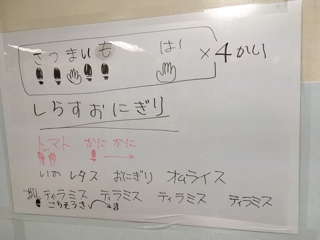 さつまいも はい ×4かい
しらすおにぎり
トマト かに かに
いか レタス おにぎり オムライス
ティラミス ティラミス ティラミス ティラミス
ごちそうさま